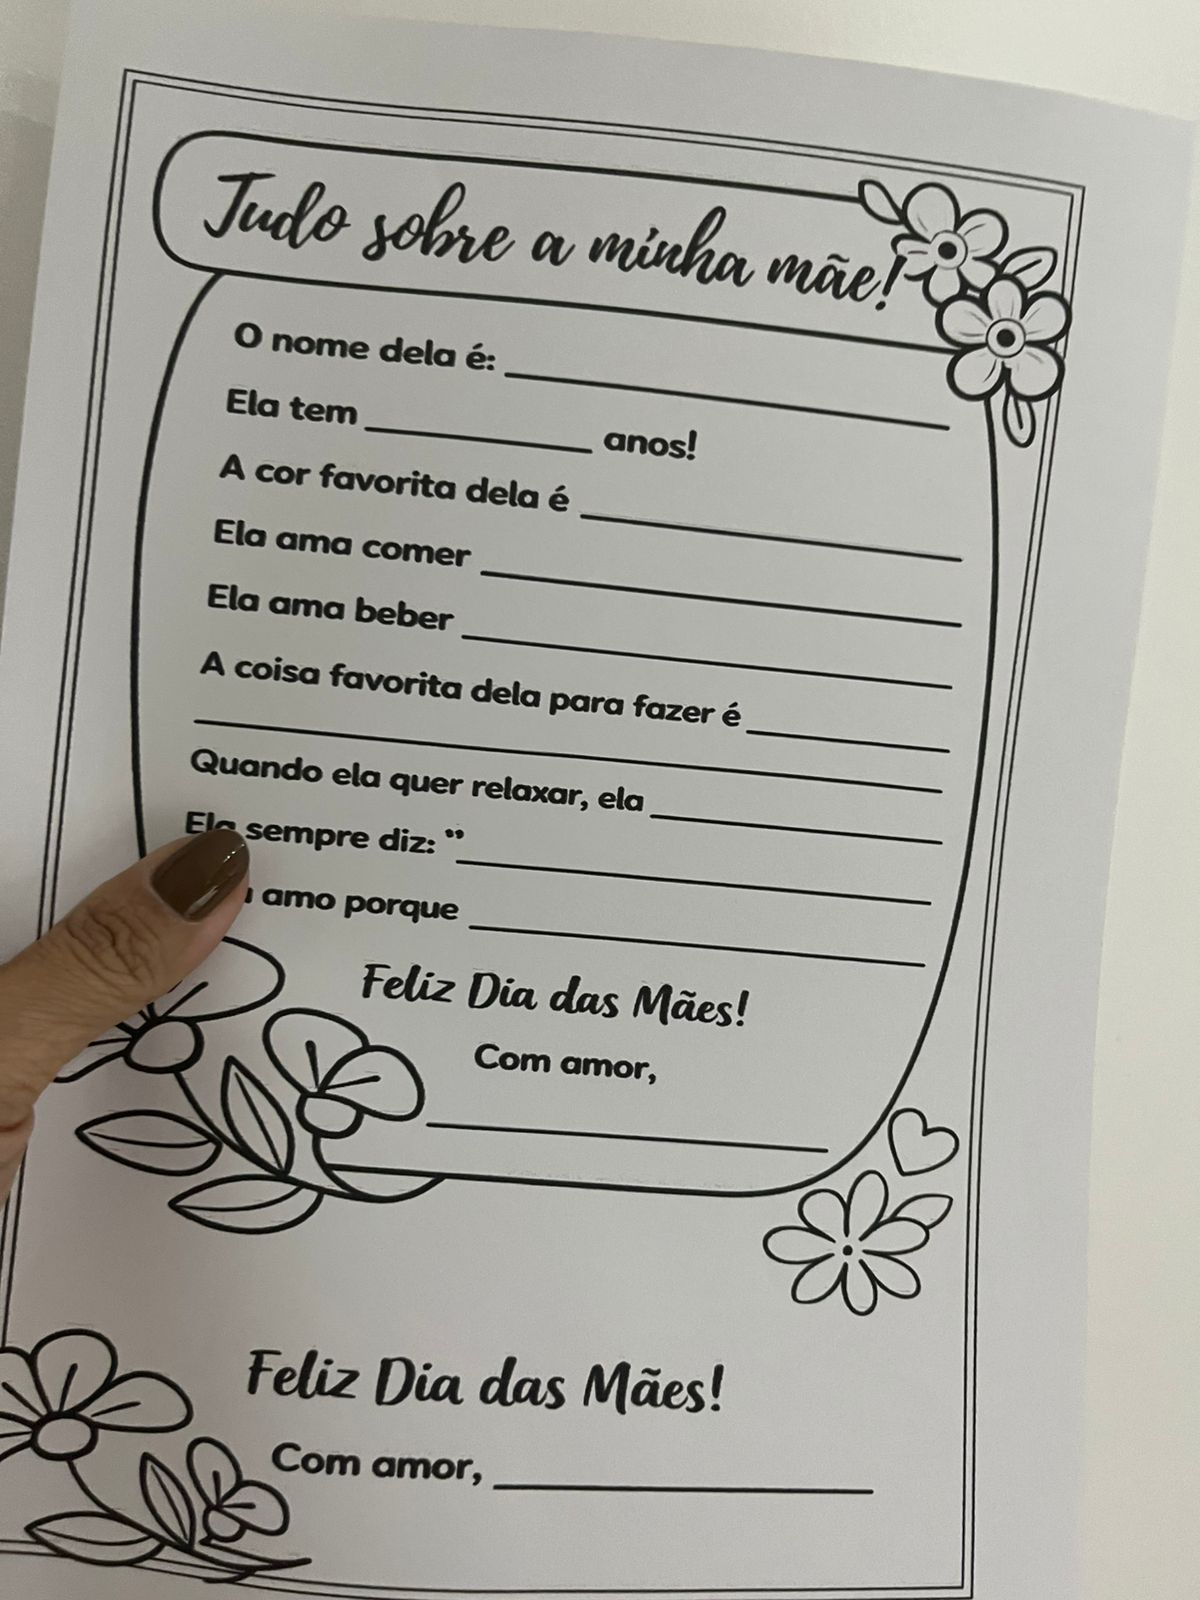 Tudo sobre a minha mãe!
O nome dela é:
Ela tem anos!
A cor favorita dela é
Ela ama comer
Ela ama beber
A coisa favorita dela para fazer é
Quando ela quer relaxar, ela
Ela sempre diz: "
amo porque
Feliz Dia das Mães!
Com amor,
Feliz Dia das Mães!
Com amor,